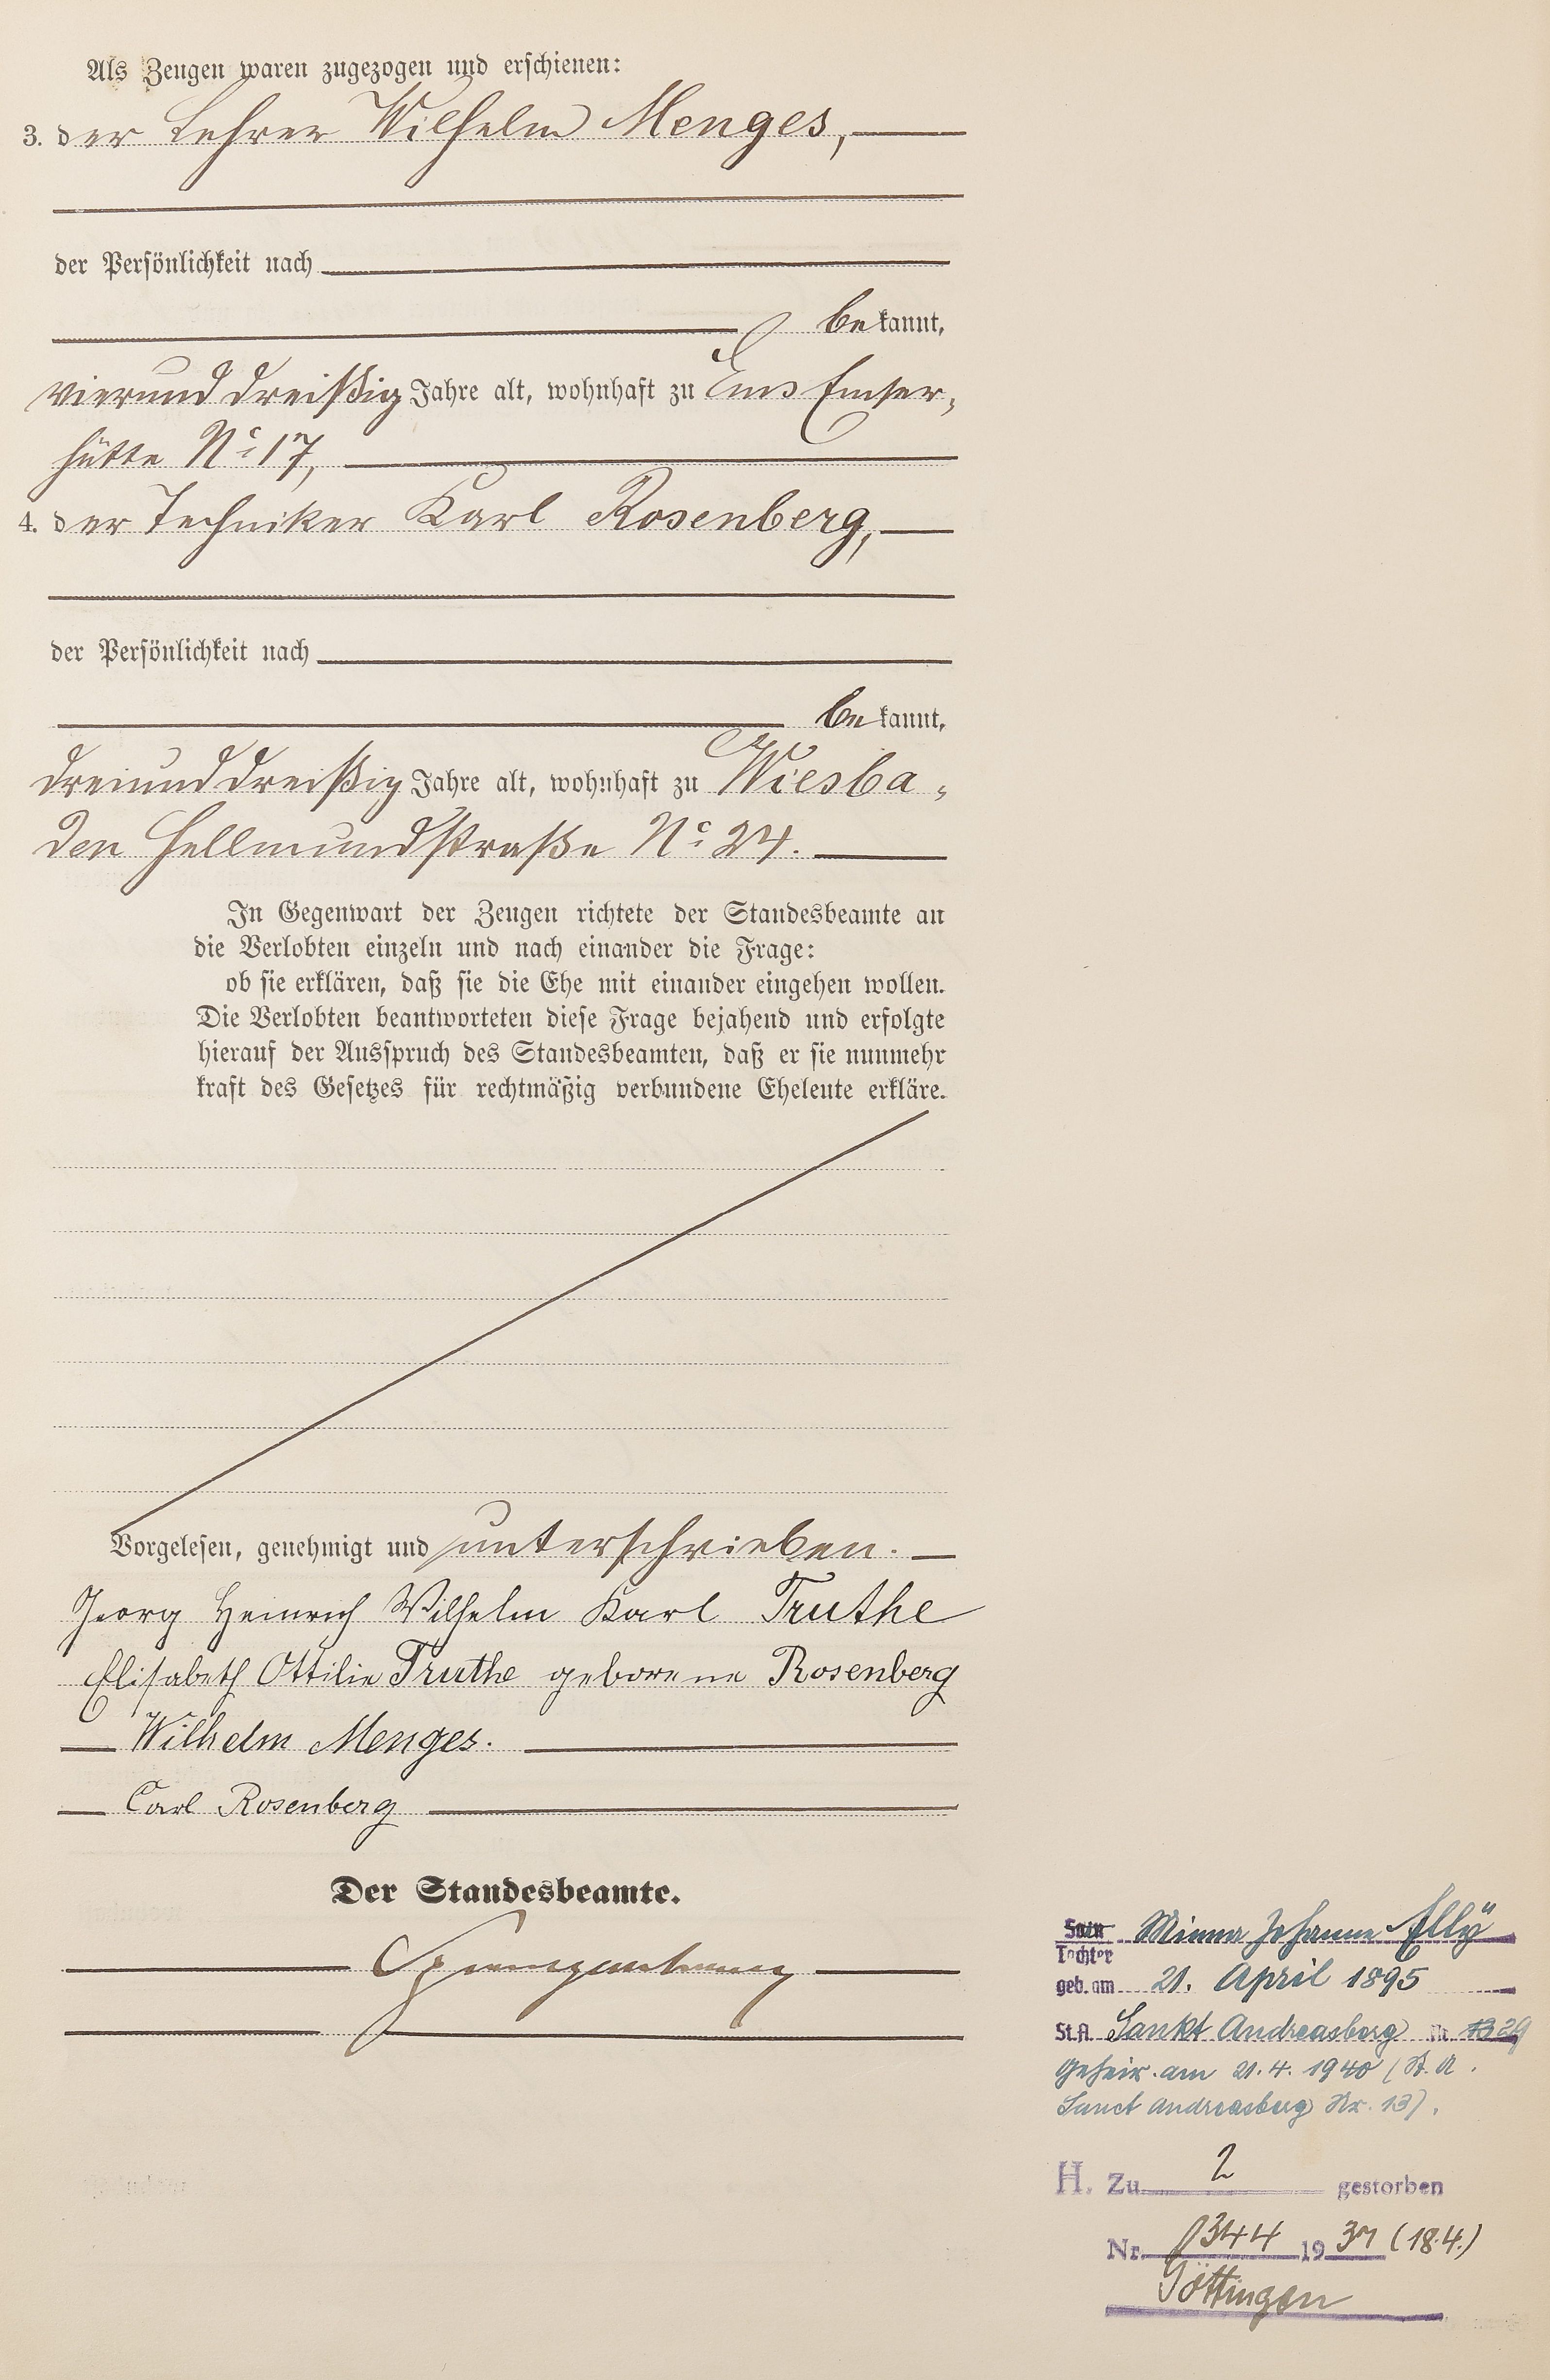 Als Zeugen waren zugezogen und erschienen:
3. der Lehrer Wilhelm Menges,
der Persönlichkeit nach
bekannt,
vierunddreißig Jahre alt, wohnhaft zu Ems Emser-
hütte No 17,
4. der Techniker Karl Rosenberg,
der Persönlichkeit nach
bekannt,
dreiunddreißig Jahre alt, wohnhaft zu Wiesba-
den Hellmundstraße No 24.
In Gegenwart der Zeugen richtete der Standesbeamte an
die Verlobten einzeln und nach einander die Frage:
ob sie erklären, daß sie die Ehe mit einander eingehen wollen.
Die Verlobten beantworteten diese Frage bejahend und erfolgte
hierauf der Ausspruch des Standesbeamten, daß er sie nunmehr
kraft des Gesetzes für rechtmäßig verbundene Eheleute erkläre.
Vorgelesen, genehmigt und unterschrieben.
Georg Heinrich Wilhelm Karl Truthe
Elisabeth Ottilie Truthe geborene Rosenberg
Wilhelm Menges.
Carl Rosenberg
Der Standesbeamte.
Sohn Minna Johanne Elly
Tochter
geb. am 21. April 1895
St.A. Sankt Andreasberg Nr. 29
geheir. am 21.4.1940 (St. A.
Sanct Andreasberg Nr. 13).
H. Zu 2 gestorben
Nr. 344 1937 (18.4.)
Göttingen